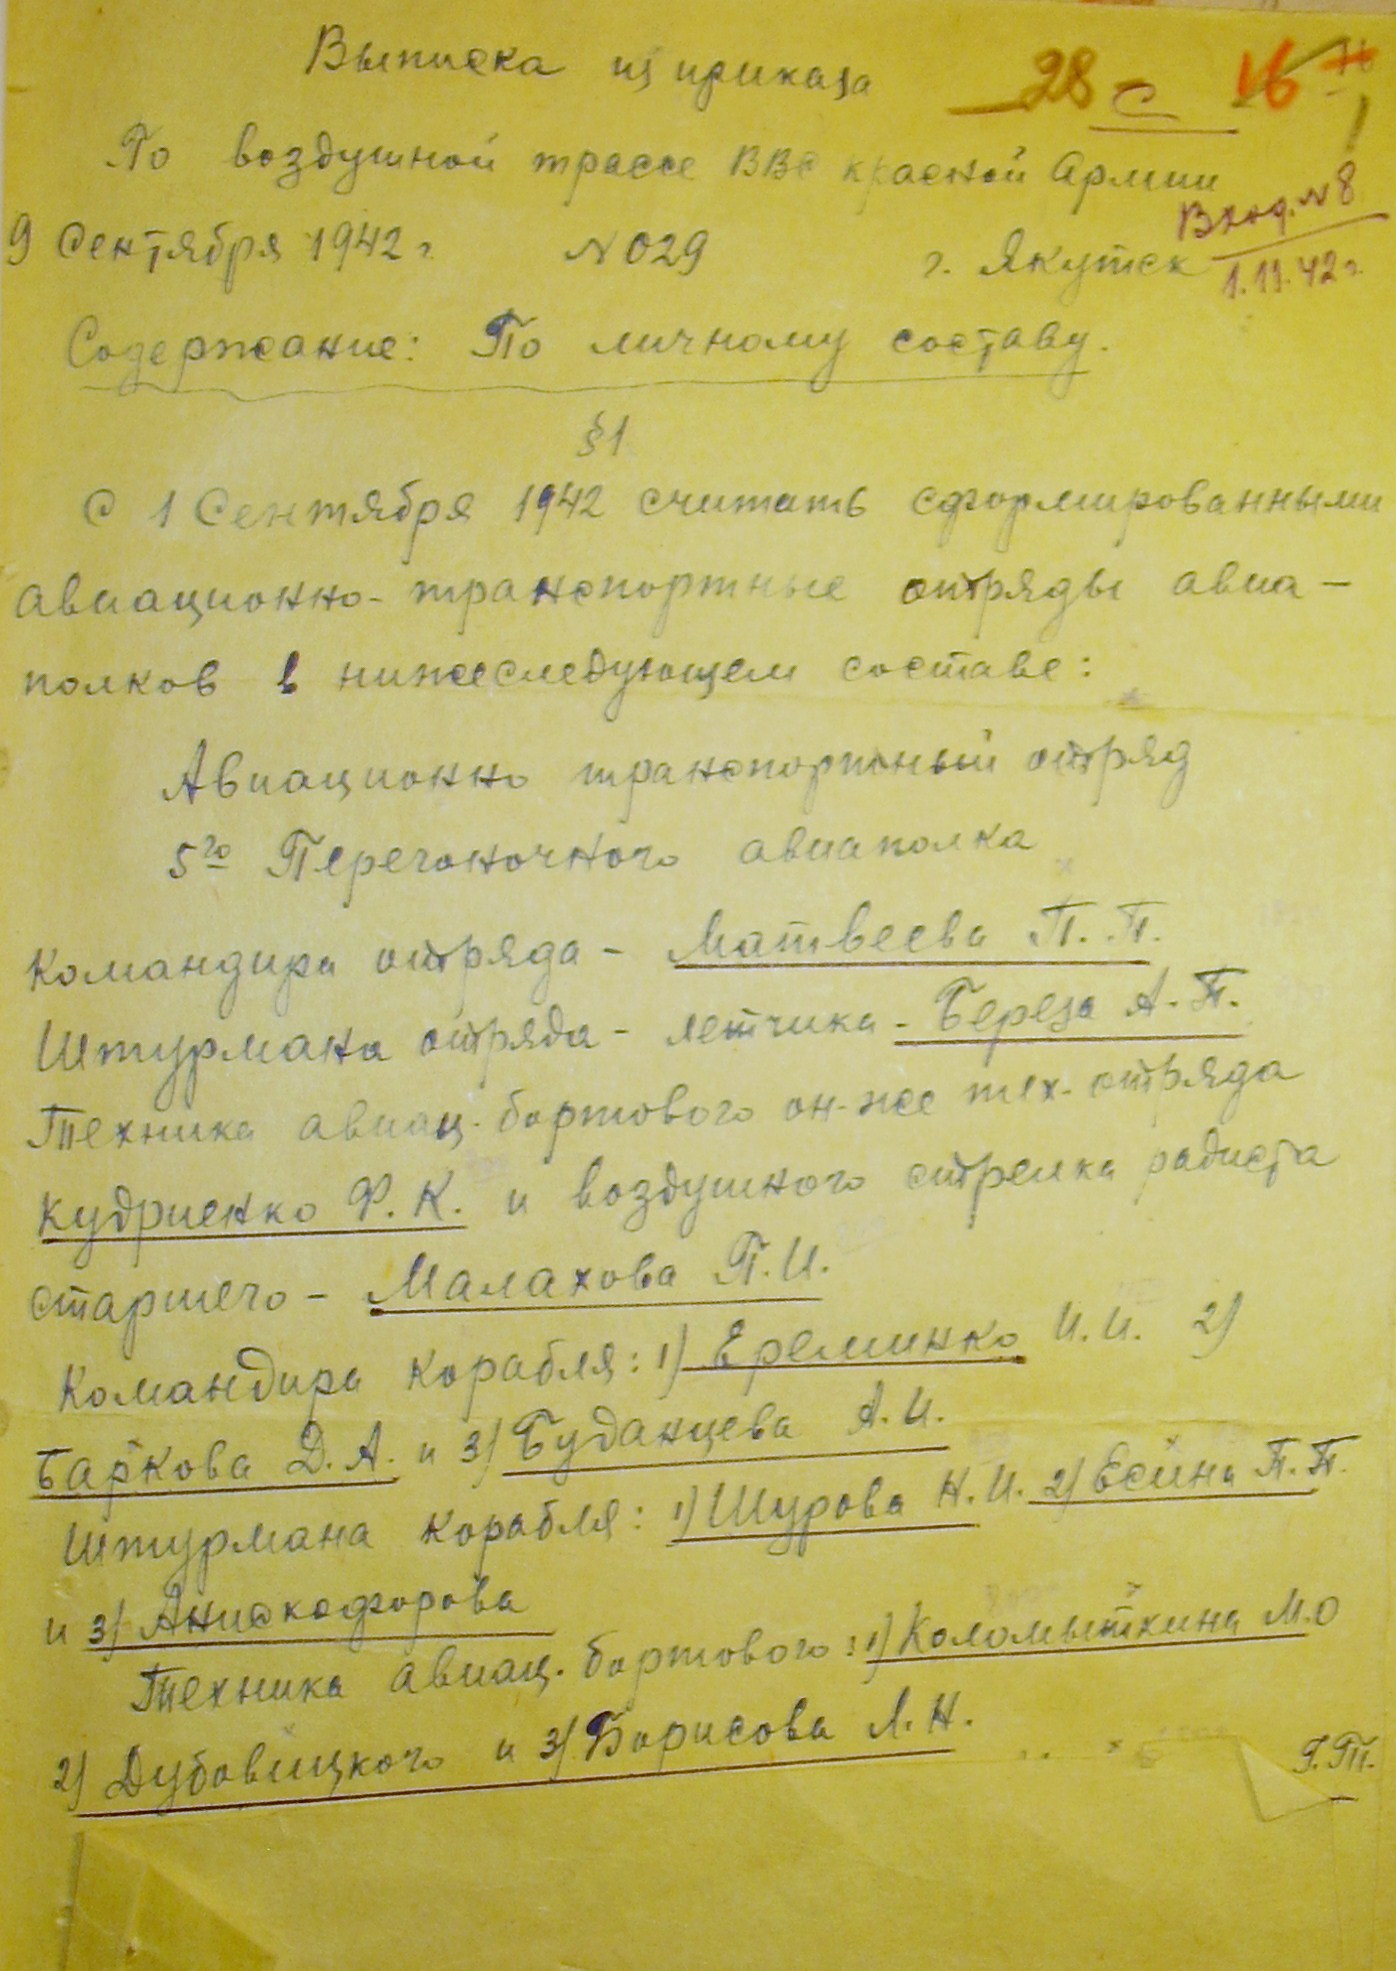 Выписка из приказа
28 с 16
По воздушной трассе ВВС красной Армии
Вход. N 8
9 Сентября 1942 г. N 029 г. Якутск
1.11.42 г.
Содержание: По личному составу.
§1
С 1 Сентября 1942 считать сформированными
авиационно-транспортные отряды авиа-
полков в нижеследующем составе:
Авиационно транспортный отряд
5го Перегоночного авиаполка
Командира отряда - Матвеева П.П.
Штурмана отряда - летчика - Береза А.П.
Техника авиац. бортового он-же тех. отряда
Кудриенко Ф.К. и воздушного стрелка радиста
старшего - Малахова П.И.
Командира корабля: 1) Ереминко И.И. 2)
Баркова Д.А. и 3) Буданцева А.И.
Штурмана корабля: 1) Шурова Н.И. 2) Есина П.П.
и 3)
Техника авиац. бортового: 1) Коломыткина М.О
2) Дубовицкого и 3) Борисова Л.Н.